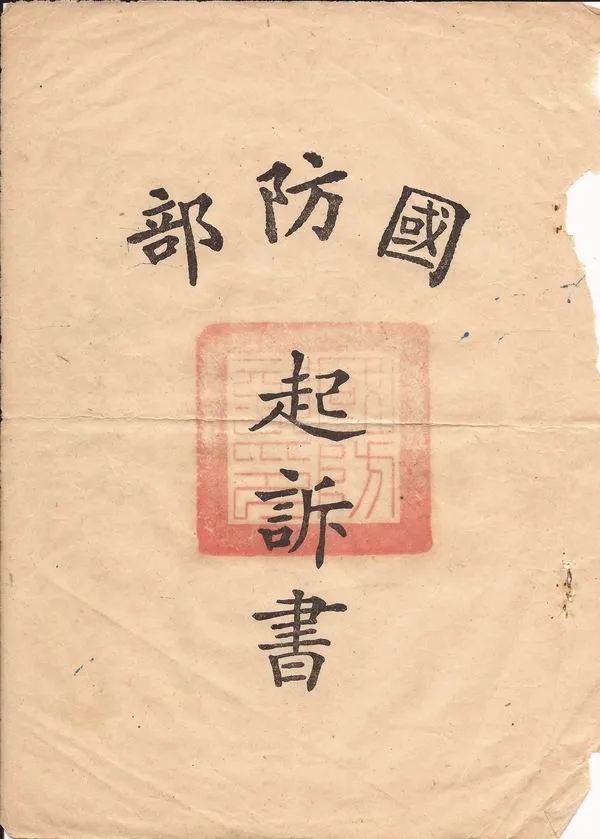 國防部
起訴書